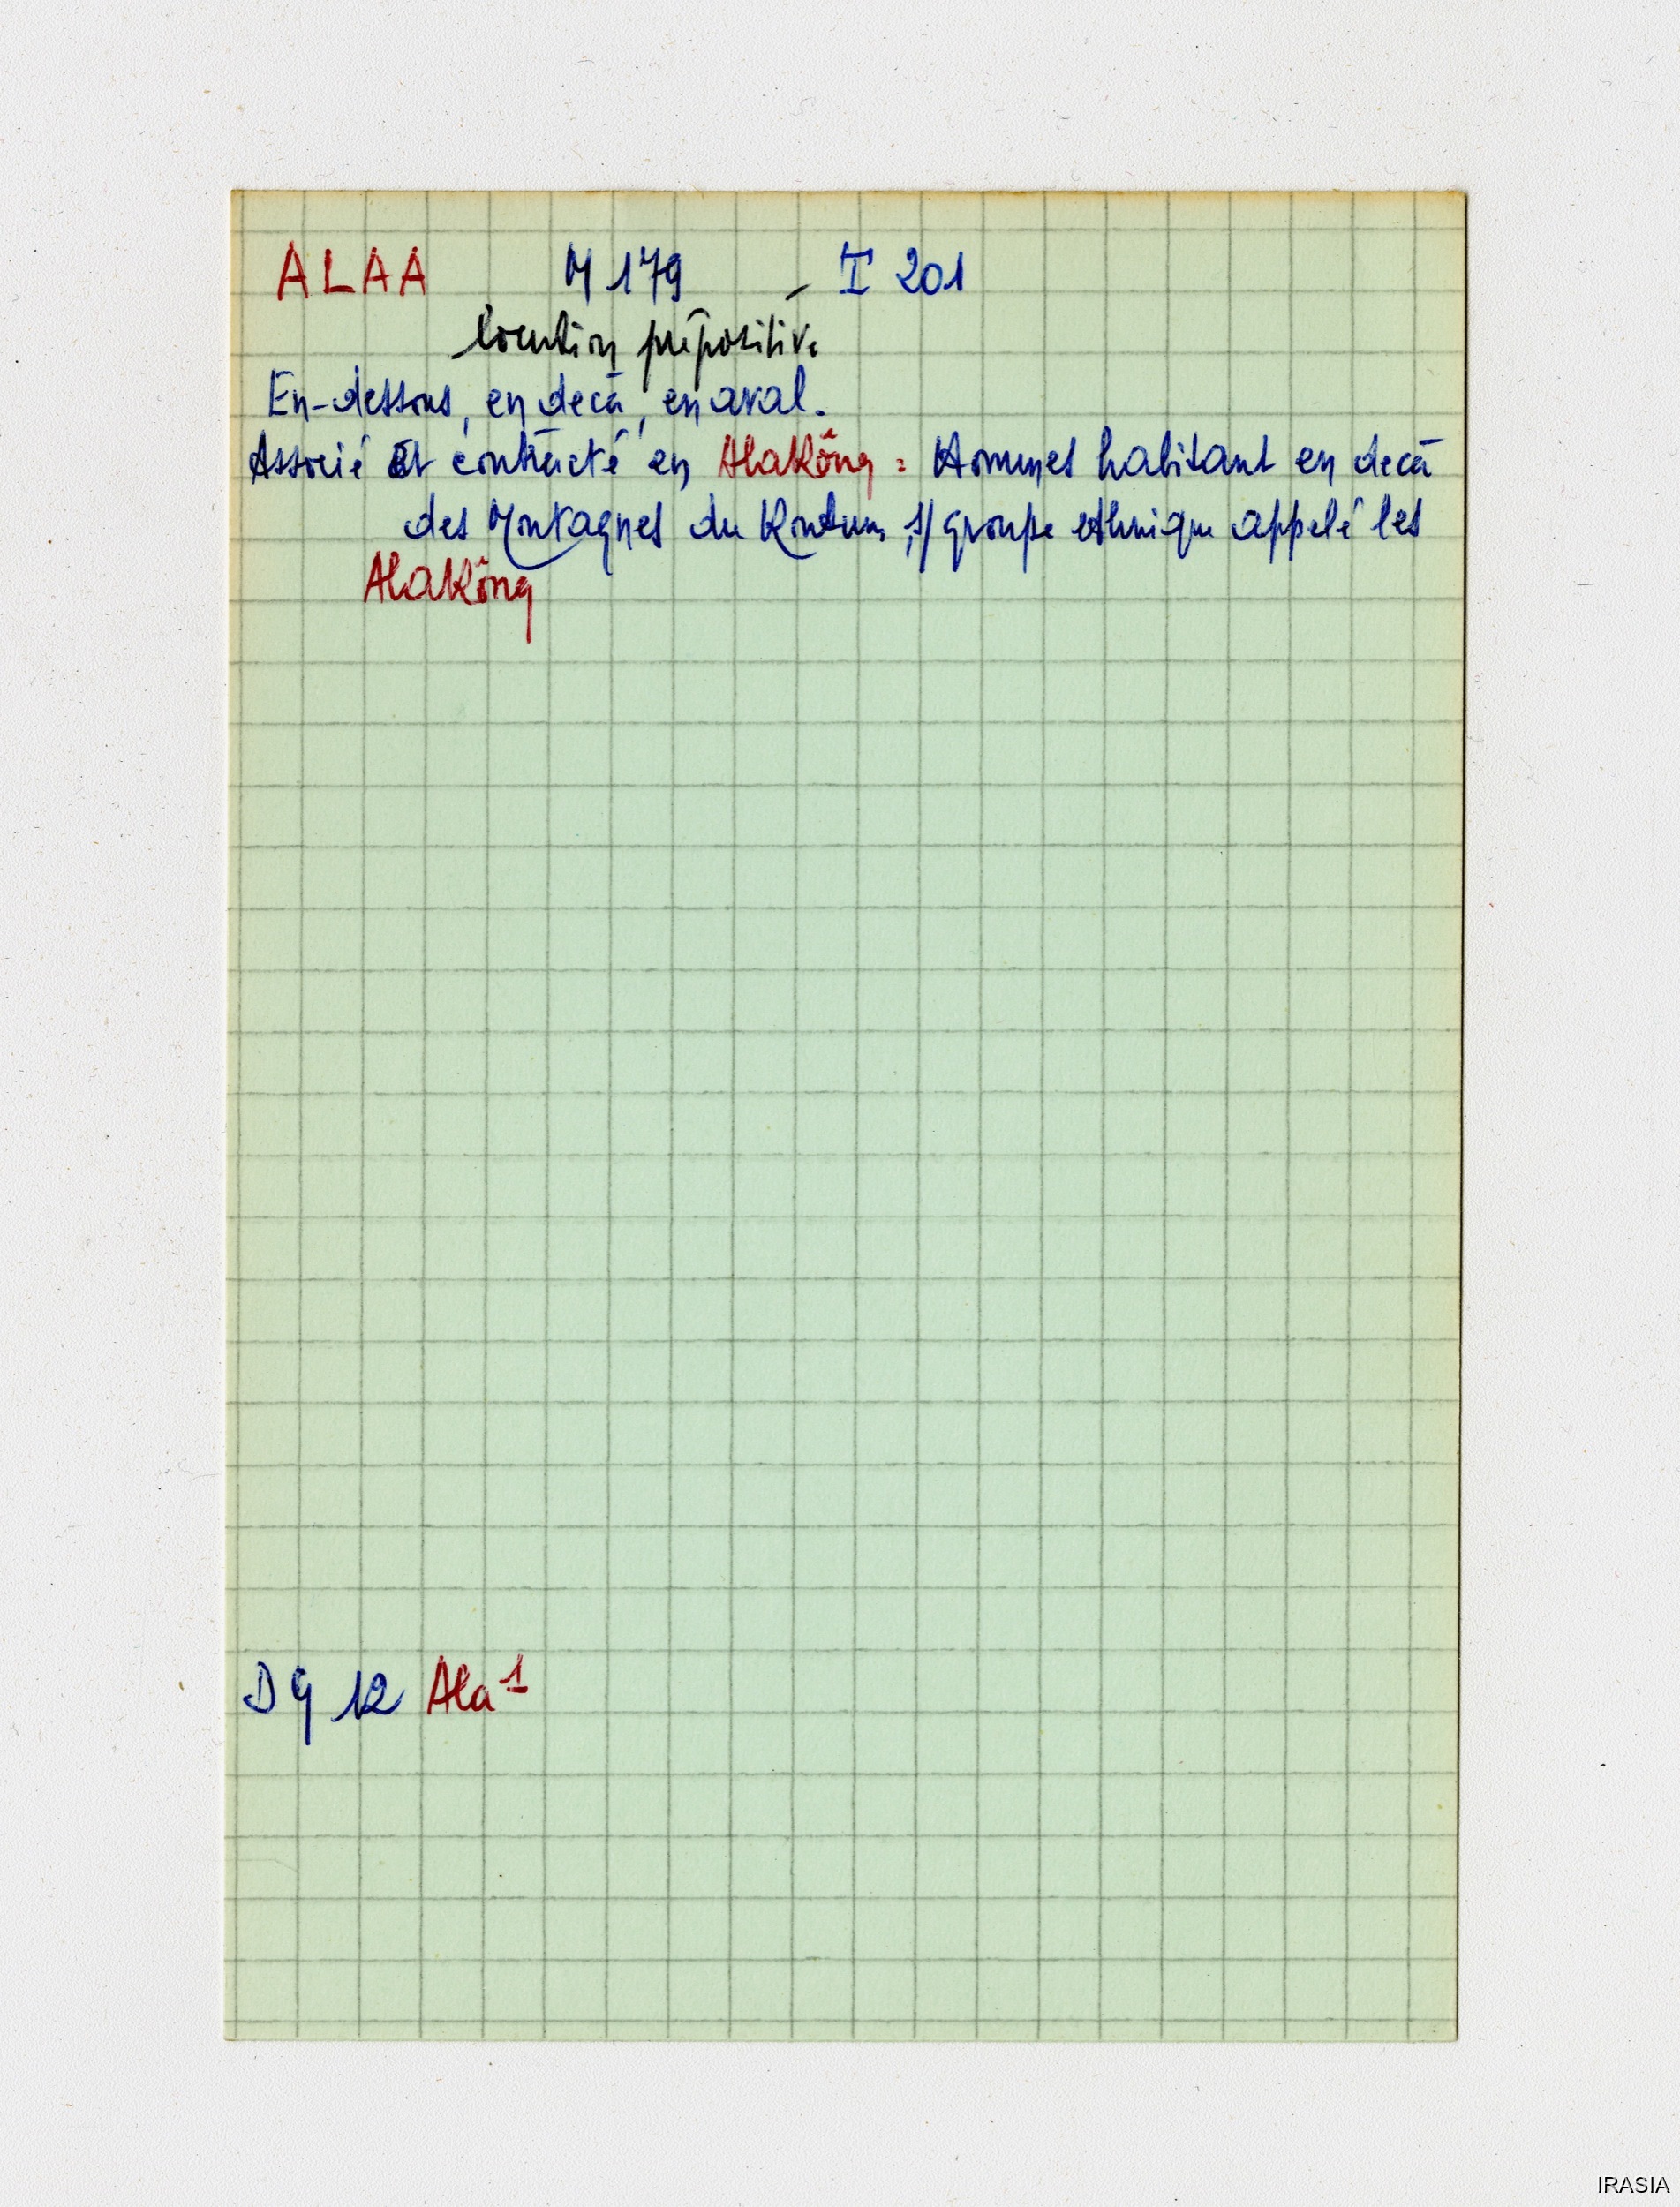 ALAA M 179 - I 201
locution prépositive
En-dessous, en decà, en aval.
Associé et contracté en AlaKông : Hommes habitant en decà
des Montagnes du Kontum, s/groupe ethnique appelé les
AlaKông
DG 12 Ala 1
IRASIA